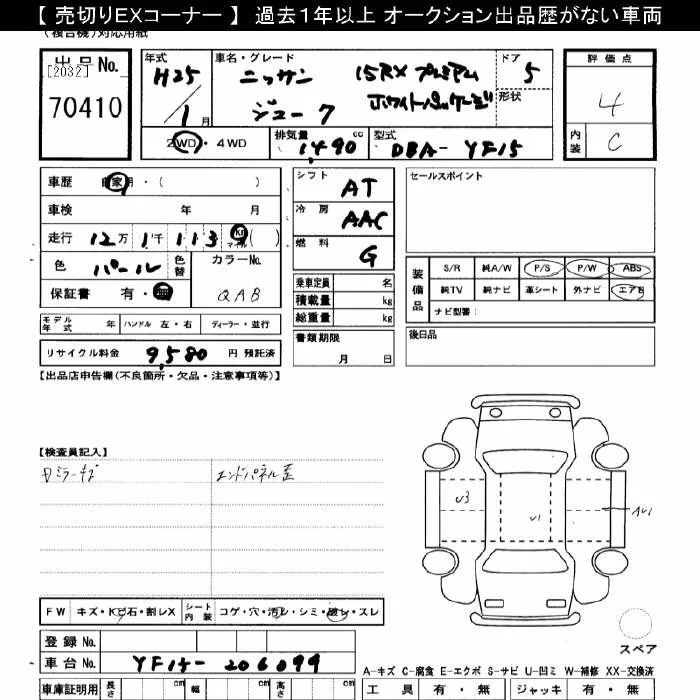 【 売切りEXコーナー 】 過去1年以上 オークション出品歴がない車両
(複合機)対応用紙
出品No. [2032] 70410
年式 H25/1月
車名・グレード ニッサン ジューク 15RX プレミアム ホワイトパッケージ
ドア 5 形状
評価点 4
内装 C
2WD・4WD
排気量 1490 cc
型式 DBA-YF15
車歴 自家用・( )
車検 年 月
走行 12万 1千 113 km マイル ( )
色 パール 色替 カラーNo. QAB
保証書 有・無
シフト AT
冷房 AAC
燃料 G
乗車定員 名
積載量 kg
総重量 kg
書類期限 月 日
セールスポイント
装備品 S/R 純A/W P/S P/W ABS
純TV 純ナビ 革シート 外ナビ エアB
ナビ型番:
後日品
モデル年式 年 ハンドル 左・右 ディーラー・並行
リサイクル料金 9,580 円 預託済
【出品店申告欄(不良箇所・欠品・注意事項等)】
【検査員記入】
ミラーキズ エンドパネル歪
U3 U1 AU1
FW キズ・トビ石・割レX シート内装 コゲ・穴・汚レ・シミ・破レ・スレ
スペア
登録No.
車台No. YF15-206099
A-キズ C-腐食 E-エクボ S-サビ U-凹ミ W-補修 XX-交換済
車庫証明用 長さ cm 幅 cm 高さ cm 工具 有・無 ジャッキ 有・無